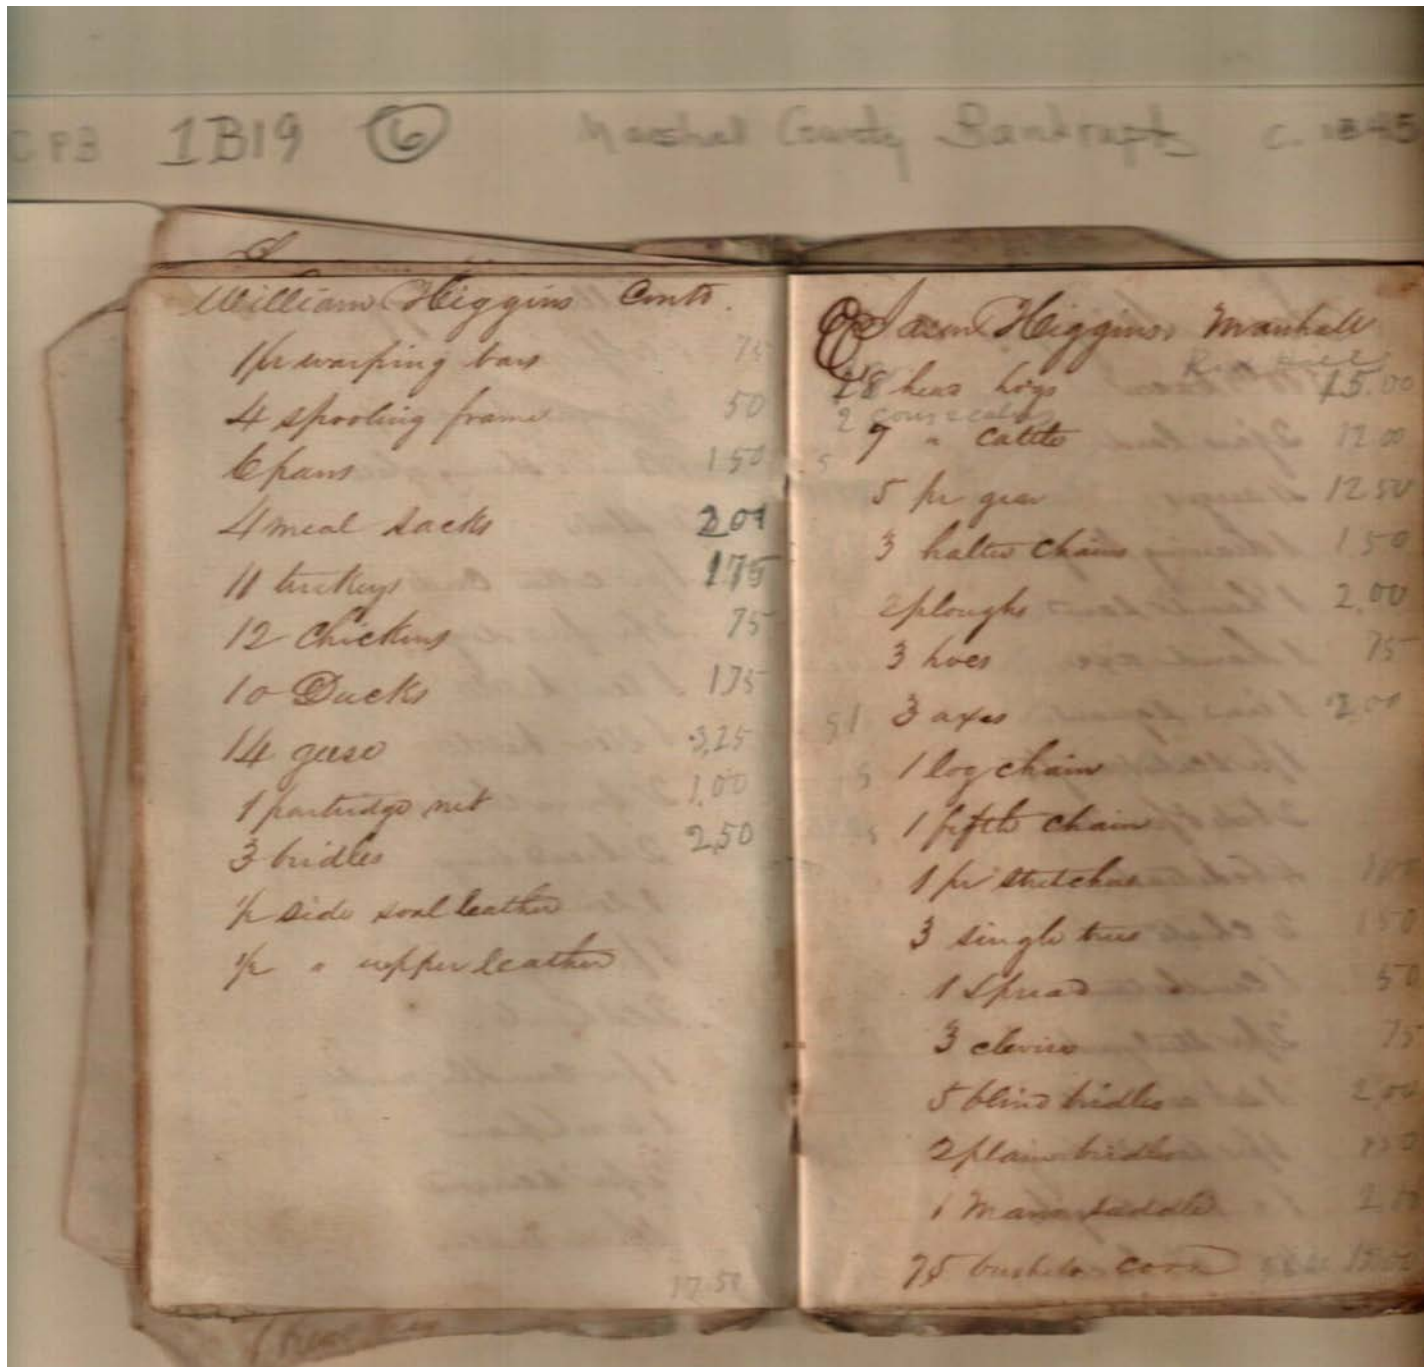 CPB 1B19 6 Marshal County Bankrupts C. 1845
William Higgins Contd.
1 pr warping bars 75
4 spooling frame 50
6 pans 150
4 meal sacks 200
11 turkeys 175
12 Chickens 75
10 Ducks 175
14 geese 3,25
1 partridge net 1,00
3 bridles 2,50
1/2 side soal leather
1/2 " upper leather
17.50
Higgins Marshall
Red Hill
18 head hogs 15.00
2 cows & calves
7 " cattle 12 00
5 pr gear 12 50
3 halter chains 1 50
2 ploughs 2,00
3 hoes 75
3 axes 2,00
1 log chain
1 fifth chain
1 pr stretchers
3 single trees 1 50
1 Spread 50
3 clevises 75
5 blind bridles 2,00
2 plain bridles
1 Mans saddle 2 00
75 bushels corn 15.00